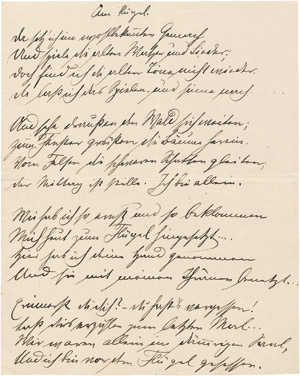 Am Flügel.
Da sitz ich im wohlbekannten Gemach
Und spiele die alten Walzer und Lieder;
Doch find ich die alten Töne nicht wieder.
Da laß ich das Spielen und sinne nach ....
Und sehe draußen den Wald sich weiten;
zum Fenster grüßen die Bäume herein.
Vom Felsen die schweren Schatten gleiten,
der Mittag ist stille. Ich bin allein.
Wie hab ich so ernst und so beklommen
Mich heut zum Flügel hingesetzt...
Hier hab ich deine Hand genommen
Und sie mit meinen Thränen benetzt...
Erinnerst du dich? – du hast's vergessen!
Laß dirs erzählen zum letzten Mal..
Wir waren allein im dämmrigen Saal,
Und ich bin vor dem Flügel gesessen.